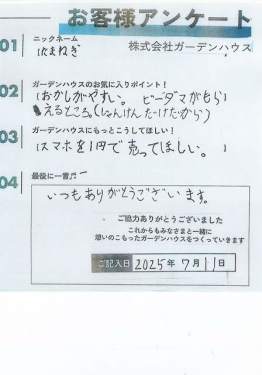 お客様アンケート
01 ニックネーム 株式会社ガーデンハウス
たまねぎ
02 ガーデンハウスのお気に入りポイント!
(おかしがやすい。ビーダマがもら
えるところ。(じゃんけんだけだから)
03 ガーデンハウスにもっとこうしてほしい!
(スマホを1円で売ってほしい。)
04 最後に一言♬
いつもありがとうございます。
ご協力ありがとうございました
これからもみなさまと一緒に
想いのこもったガーデンハウスをつくっていきます
ご記入日 2025年7月11日